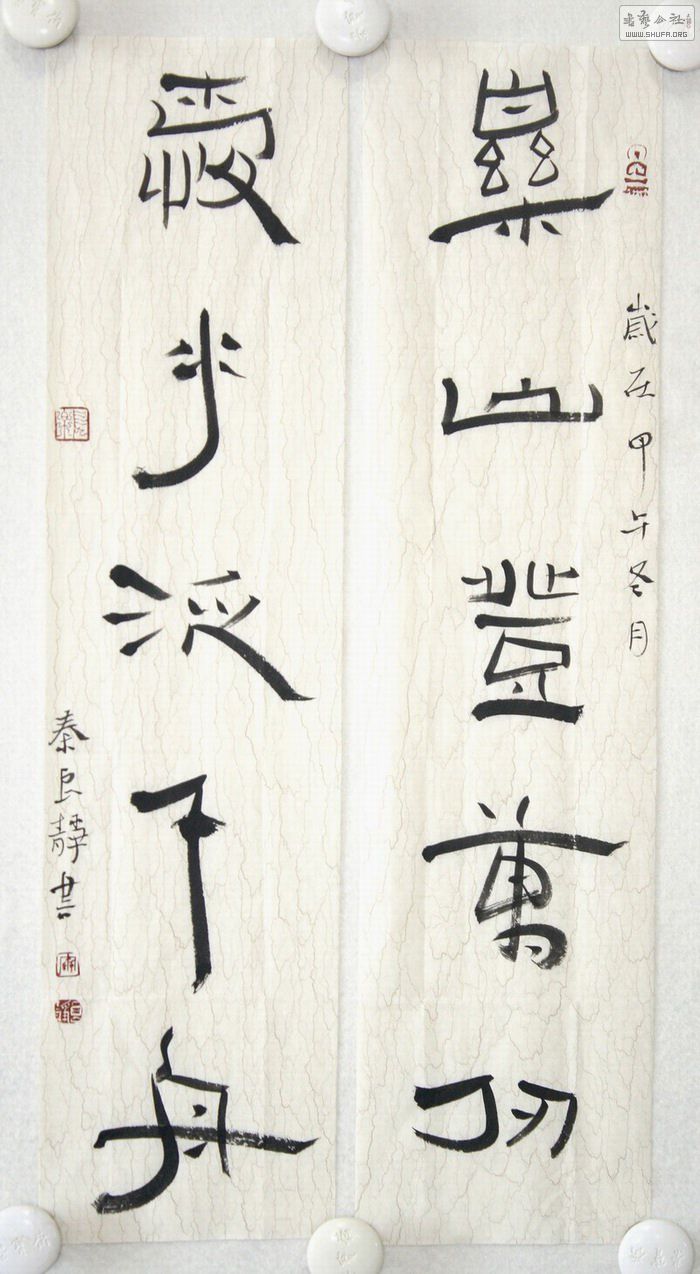 歲在甲午冬月
樂山登萬仞
愛水泛千舟
秦良靜書
書藝公社
WWW.SHUFA.ORG